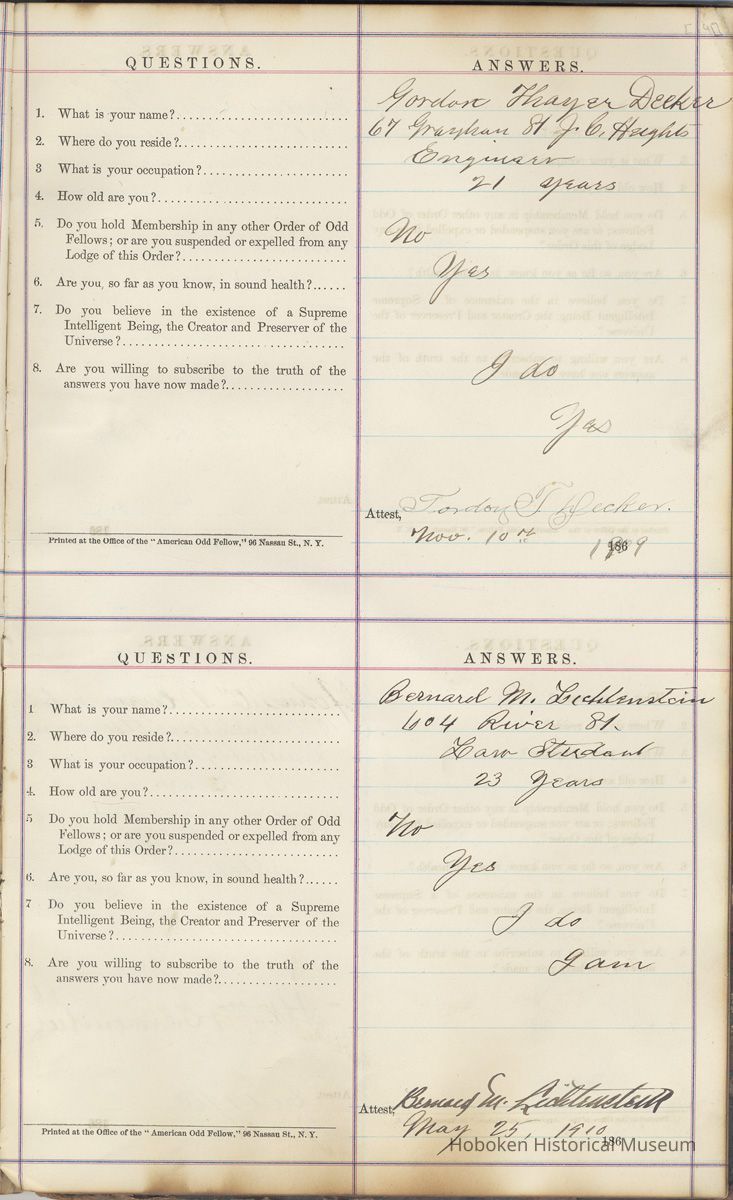 QUESTIONS.
ANSWERS.
1. What is your name?
Gordon Thayer Decker
2. Where do you reside?
67 Graham St J. C. Heights
3 What is your occupation?
Engineer
4. How old are you?
21 years
5. Do you hold Membership in any other Order of Odd
Fellows; or are you suspended or expelled from any
Lodge of this Order?
No
6. Are you, so far as you know, in sound health?
Yes
7. Do you believe in the existence of a Supreme
Intelligent Being, the Creator and Preserver of the
Universe?
I do
8. Are you willing to subscribe to the truth of the
answers you have now made?
Yes
Attest, Gordon T Decker.
Nov. 10th 1909
186
Printed at the Office of the "American Odd Fellow," 96 Nassau St., N. Y.
QUESTIONS.
ANSWERS.
1 What is your name?
Bernard M. Lichtenstein
2. Where do you reside?
604 River St.
3 What is your occupation?
Law Student
4. How old are you?
23 Years
5 Do you hold Membership in any other Order of Odd
Fellows; or are you suspended or expelled from any
Lodge of this Order?
No
6. Are you, so far as you know, in sound health?
Yes
7 Do you believe in the existence of a Supreme
Intelligent Being, the Creator and Preserver of the
Universe?
I do
8. Are you willing to subscribe to the truth of the
answers you have now made?
I am
Attest, Bernard M. Lichtenstein
May 25, 1910
186
Printed at the Office of the "American Odd Fellow," 96 Nassau St., N. Y.
Hoboken Historical Museum